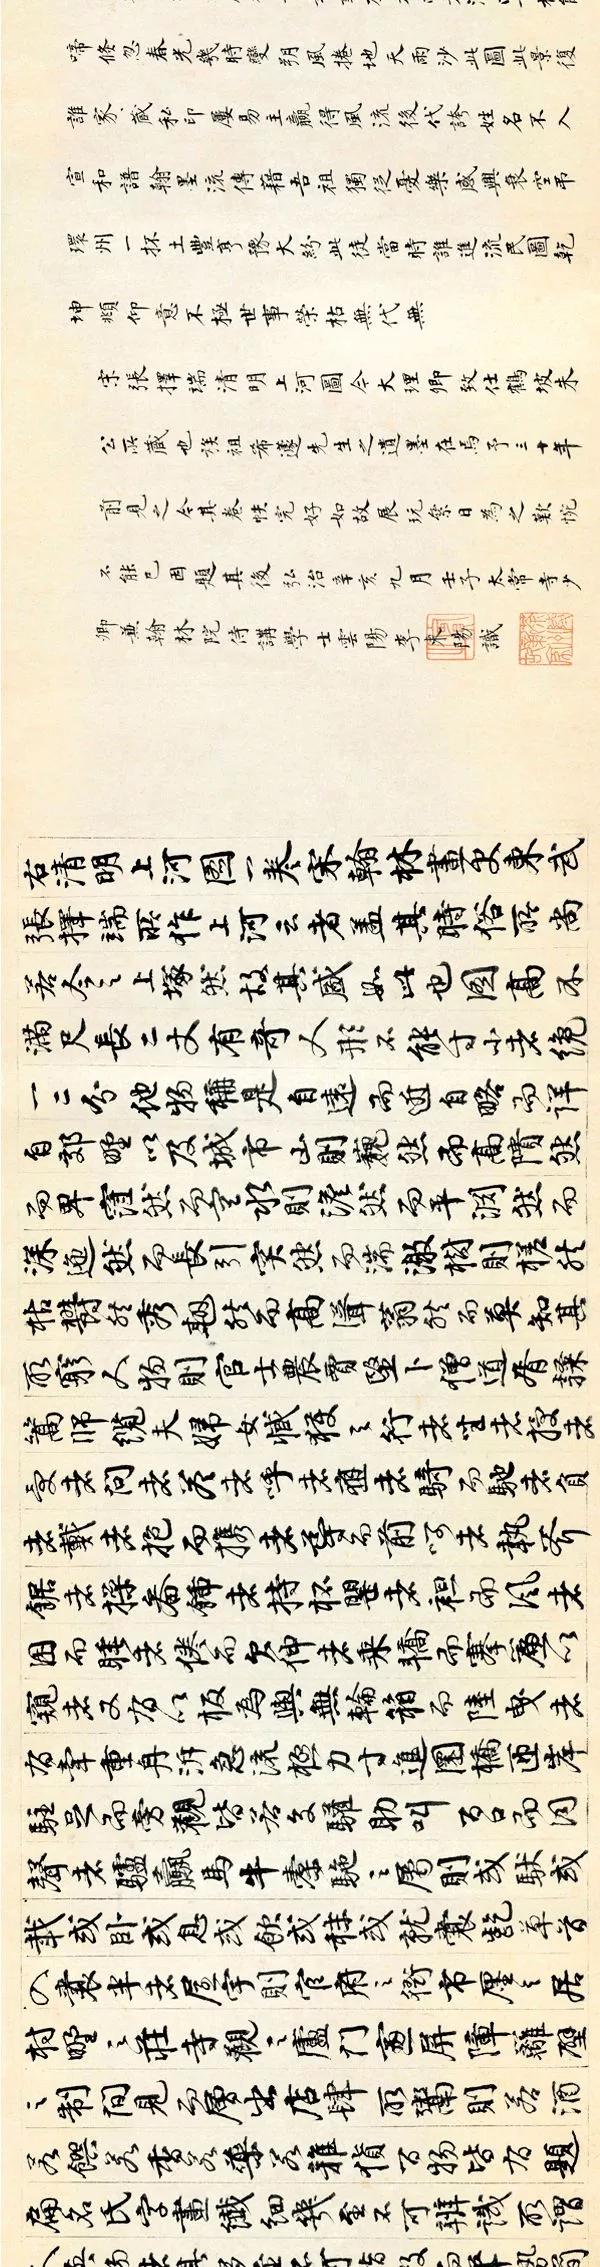 啼倏忽春光幾時變朔風捲地天雨沙此圖此景復
誰家、藏私印屢易主贏得風流後代誇姓名不入
宣和譜翰墨流傳藉吾祖獨從憂樂感興衰空弔
環州一抔土豐亨豫大紛此徒當時誰進流民圖乾
坤頫仰意不極世事榮枯無代無
宋張擇端清明上河圖今大理卿致仕鶴坡朱
公所藏也族祖希蘧先生之遺墨在焉予三十年
前見之今其卷帙完好如故展玩累日為之歎惋
不能已因題其後弘治辛亥九月壬子太常寺少
卿兼翰林院侍講學士雲陽李東陽識
右清明上河圖一卷宋翰林畫史東武
張擇端所作上河云者蓋其時俗所尚
若今之上塚然故其盛如此也圖高不
滿尺長二丈有奇人形不能寸小者纔
一二分他物稱是自遠而近自略而詳
自郊野以及城市山則巍然而高隤然
而卑窪然而空水則澹然而平淵然而
深迤然而長引突然而湍激樹則槎然
枯鬱然秀翹然而高聳蓊然而莫知其
所窮人物則官士農賈醫卜僧道胥隸
篙師纜夫婦女臧獲之行者坐者授者
受者問者答者呼者應者騎而馳者負
者戴者抱而攜者導而前呵者執斧
鋸者操畚鍤者持杯罌者袒而風者
困而睡者倦而欠伸者乘轎而搴簾以
窺者又有以板為輿無輪箱而陸曳者
有牽重舟泝急流極力寸進圜橋匝岸
駐足而旁觀皆若交驩助叫百口而同
聲者驢騾馬牛橐駝之屬則或馱或
載或臥或息或飲或秣或就囊齕草首
入囊半者屋宇則官府之衙市廛之居
村野之莊寺觀之廬門窗屏障籬壁
之制間見而層出店肆所鬻則若酒
若饌若香若藥若雜貨百物皆有題
扁名氏字畫纖細幾至不可辨識所謂